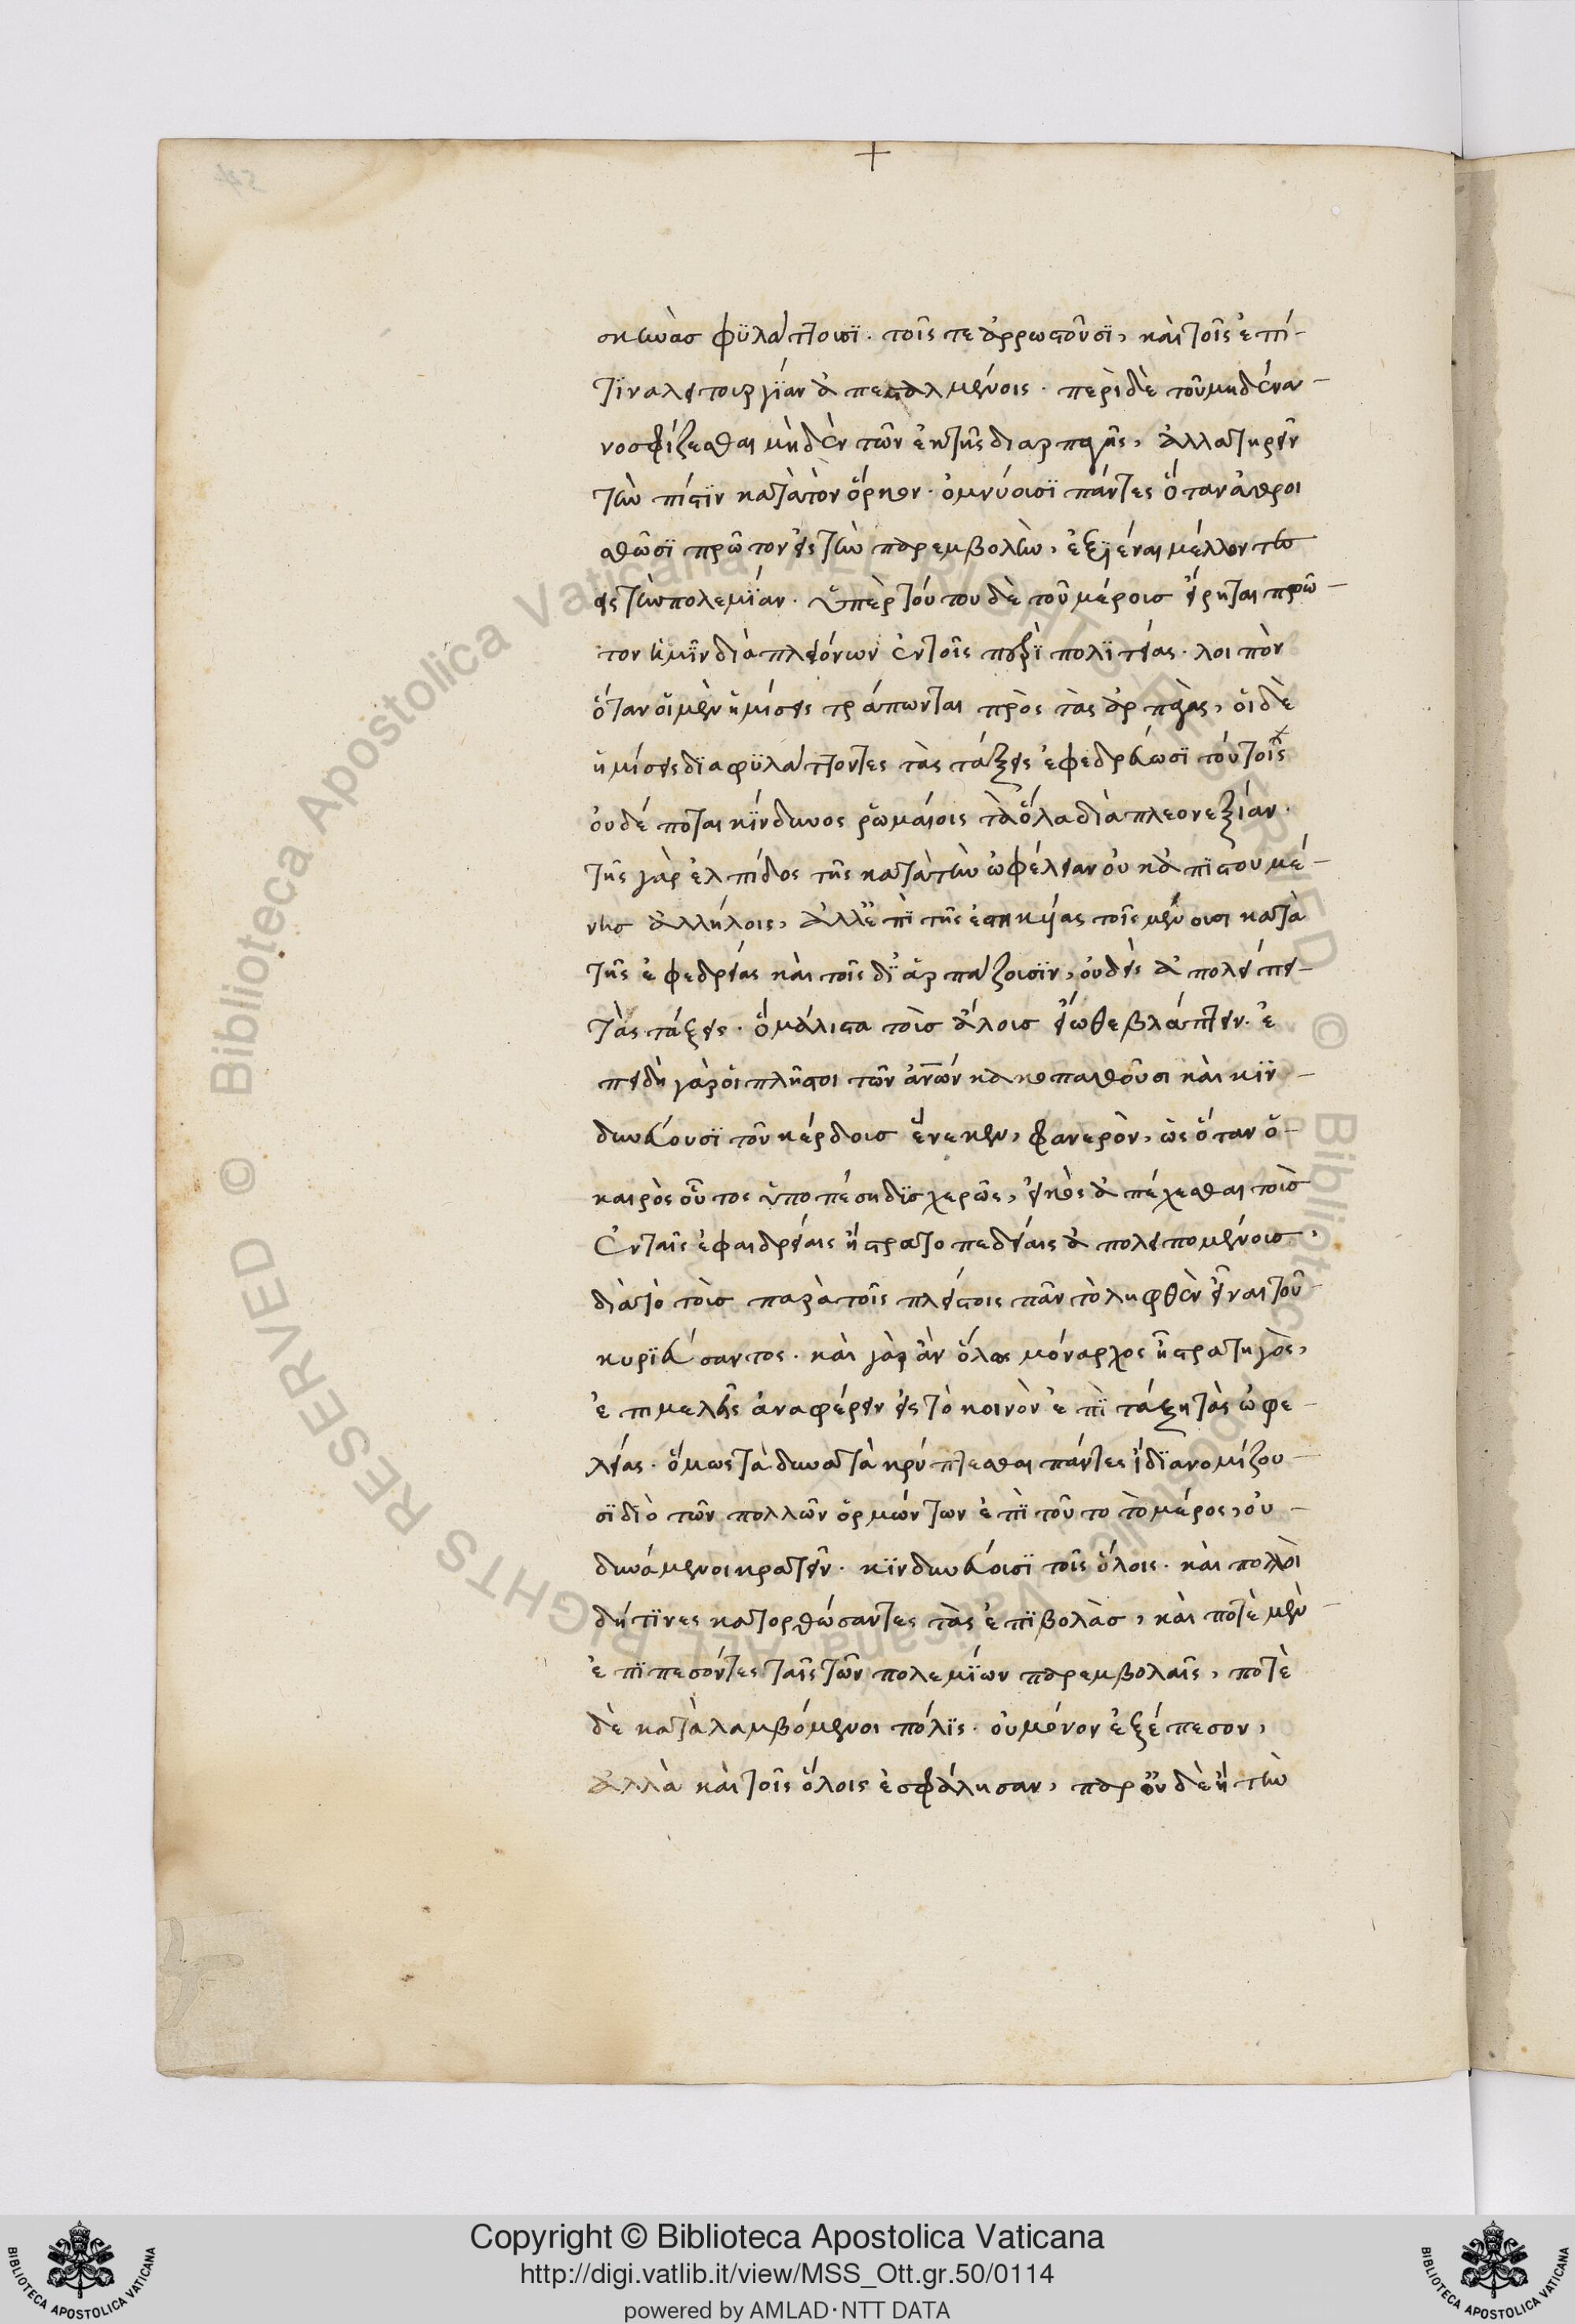 +
σκηνὰσ φϋλάττουσϊ. τοῖς τε ἀρρωστοῦσϊ, καὶ τοῖς ἐπί-
τϊνα λειτουργΐαν ἀπεσταλμένοις. περὶ δὲ τοῦ μηδένα
νοσφίζεσθαι μὴδὲν τῶν ἐκ τῆς διαρπαγῆς, ἀλλα τηρεῖν
τὴν πίστϊν κατὰ τὸν ὅρκον. ὀμνύουσϊ πάντες ὅταν ἀθροι
σθῶσϊ πρῶτον εἰς τὴν παρεμβολὴν, ἐξϊέναι μέλλοντων
εἰς τὴν πολεμΐαν. ὑπὲρ τούτου δὲ τοῦ μέρους εἴρηται πρῶ-
τον ἡμῖν διὰ πλειόνων ἐν τοῖς περὶ πολϊτείας. λοιπὸν
ὅταν οἵ μὲν ἡμίσεις τράπωνται πρὸς τὰς ἁρπαγὰς, οἱ δὲ
ἡμίσεις διαφϋλάττοντες τὰς τάξεις ἐφεδρεύωσϊ τούτοις
ουδέποται κϊνδυνος ῥωμαίοις τὰ ὅλα διὰ πλεονεξίαν.
τῆς γὰρ ἐλπίδος τῆς κατὰ τὴν ὠφέλειαν οὐκ ἀπϊστουμέ-
νησ ἀλλήλοις, ἀλλ' ἐπϊ τῆς ἑστηκυίας τοῖς μένουσι κατὰ
τῆς ἐφεδρείας καὶ τοῖς δϊἁρπάζουσϊν, οὐδεὶς ἀπολείπει
τὰς τάξεις. ὅ μάλιστα τοὺσ ἄλουσ εἴωθε βλάπτειν. ἐ
πειδὴ γὰρ οἱ πλῆστοι τῶν ἀνων κακοπαιθοῦσι καὶ κϊν-
δυνεύουσϊ τοῦ κέρδουσ ἕνεκεν, φανερὸν, ὡς ὅταν ὁ-
καιρὸς οὗτος ὑποπέση δϊσχερῶς, εἰκὸς ἀπέχεσθαι τοὺσ
ἐν ταῖς ἐφαιδρείαις ἢ στρατοπεδείαις ἀπολειπομένουσ,
διὰ τὸ τοὺσ παρὰ τοῖς πλείστοις πᾶν τὸ ληφθὲν εἶναι τοῦ
κυρϊεύσαντος. καὶ γὰρ ἂν ὅλως μόναρχος ἢ στρατηγὸς,
ἐπιμελῆς ἀναφέρειν εἰς τὸ κοινὸν ἐπϊτάξη τὰς ὠφε-
λείας. ὅμως τὰ δυνατὰ κρύπτεσθαι πάντες ἰδϊα νομίζου-
σϊ διὸ τῶν πολλῶν ὁρμώντων ἐπϊ τοῦτο τὸ μέρος, οὐ-
δυνάμενοι κρατεῖν. κϊνδυνεύουσϊ τοῖς ὅλοις. καὶ πολλοὶ
δήτϊνες κατορθώσαντες τὰς ἐπϊβολὰσ, καὶ ποτὲ μὲν
ἐπϊπεσόντες ταῖς τῶν πολεμΐων παρεμβολαῖς, ποτὲ
δὲ κατὰλαμβόμενοι πόλϊς. οὐ μόνον ἐξέπεσον,
ἀλλὰ καὶ τοῖς ὅλοις ἐσφάλησαν, παρ' οὐδὲν ἢ τὴν
© Biblioteca Apostolica Vaticana ALL RIGHTS RESERVED
Copyright © Biblioteca Apostolica Vaticana
http://digi.vatlib.it/view/MSS_Ott.gr.50/0114
powered by AMLAD·NTT DATA
BIBLIOTECA APOSTOLICA VATICANA
BIBLIOTECA APOSTOLICA VATICANA